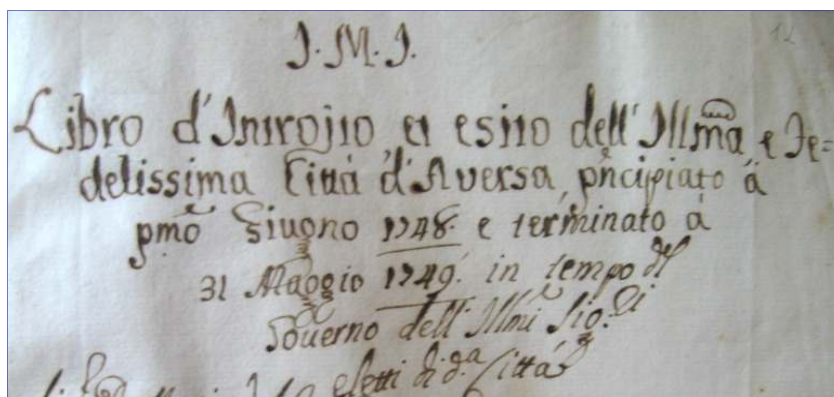 J. M. J.
12
Libro d'Introjto et esito dell'Illma e Fe=
delissima Città d'Aversa, pncipiato à
pmo Giugno 1748. e terminato à
31 Maggio 1749. in tempo del
Governo dell'Illmi Sig.ri
Eletti di d.a Città